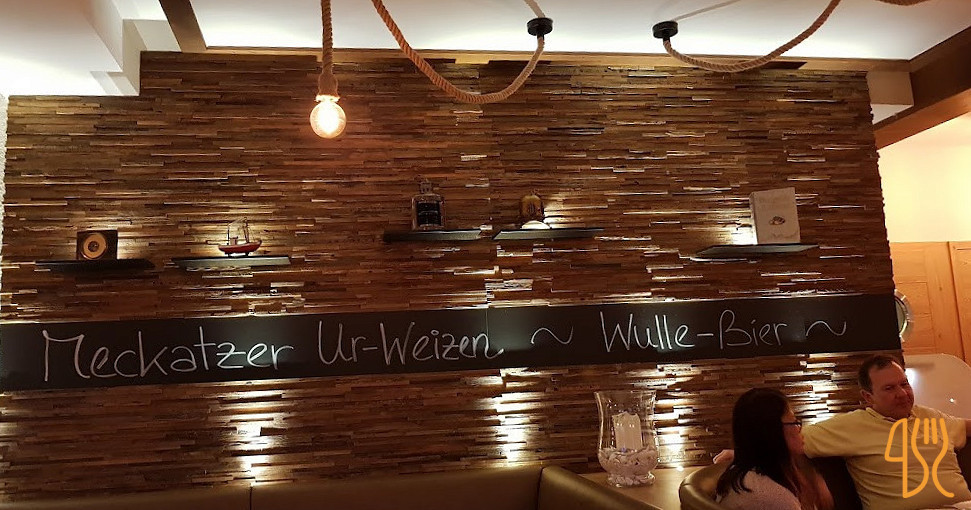 Meckatzer Ur-Weizen ~ Wulle-Bier ~